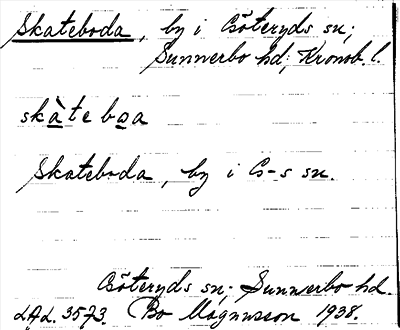 Skateboda, by i Göteryds sn;
Sunnerbo hd; Kronob. l.
skàteboa
Skateboda, by i G-s sn.
Göteryds sn; Sunnerbo hd.
LAL. 3573. Bo Magnusson 1938.